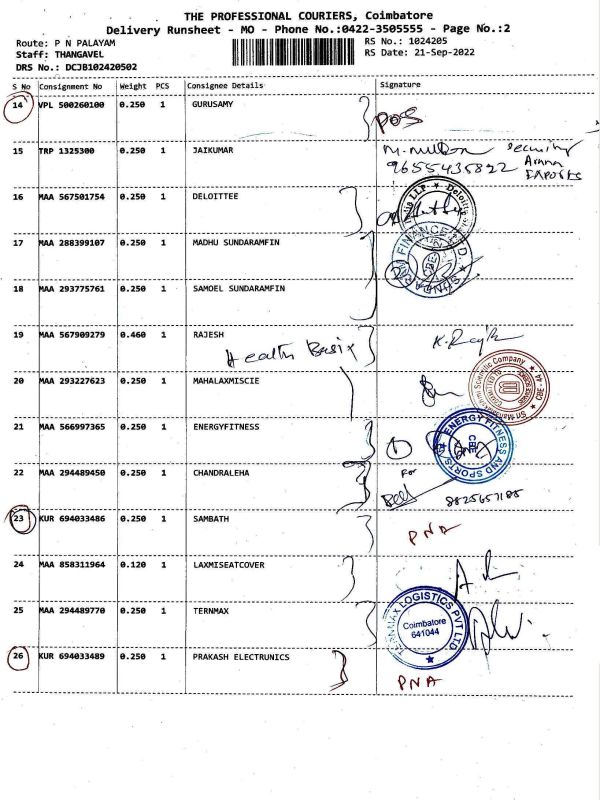 THE PROFESSIONAL COURIERS, Coimbatore
Delivery Runsheet - MO - Phone No.:0422-3505555 - Page No.:2
Route: P N PALAYAM
RS No.: 1024205
Staff: THANGAVEL
RS Date: 21-Sep-2022
DRS No.: DCJB102420502
S No Consignment No Weight PCS Consignee Details Signature
14 VPL 500260100 0.250 1 GURUSAMY
POS
15 TRP 1325300 0.250 1 JAIKUMAR
security
9655435822
EXPORTS
16 MAA 567501754 0.250 1 DELOITTEE
LLP ★ Deloitte
17 MAA 288399107 0.250 1 MADHU SUNDARAMFIN
CBE
18 MAA 293775761 0.250 1 SAMOEL SUNDARAMFIN
19 MAA 567909279 0.460 1 RAJESH
Health Basix
20 MAA 293227623 0.250 1 MAHALAXMISCIE
Scientific Company ★ CBE - 44 ★
21 MAA 566997365 0.250 1 ENERGYFITNESS
ENERGY FITNESS AND SPORTS
CBE
22 MAA 294489450 0.250 1 CHANDRALEHA
For
8825657188
23 KUR 694033486 0.250 1 SAMBATH
PNA
24 MAA 858311964 0.120 1 LAXMISEATCOVER
25 MAA 294489770 0.250 1 TERNMAX
TERNMAX LOGISTICS PVT LTD
Coimbatore
641044
26 KUR 694033489 0.250 1 PRAKASH ELECTRUNICS
PNA